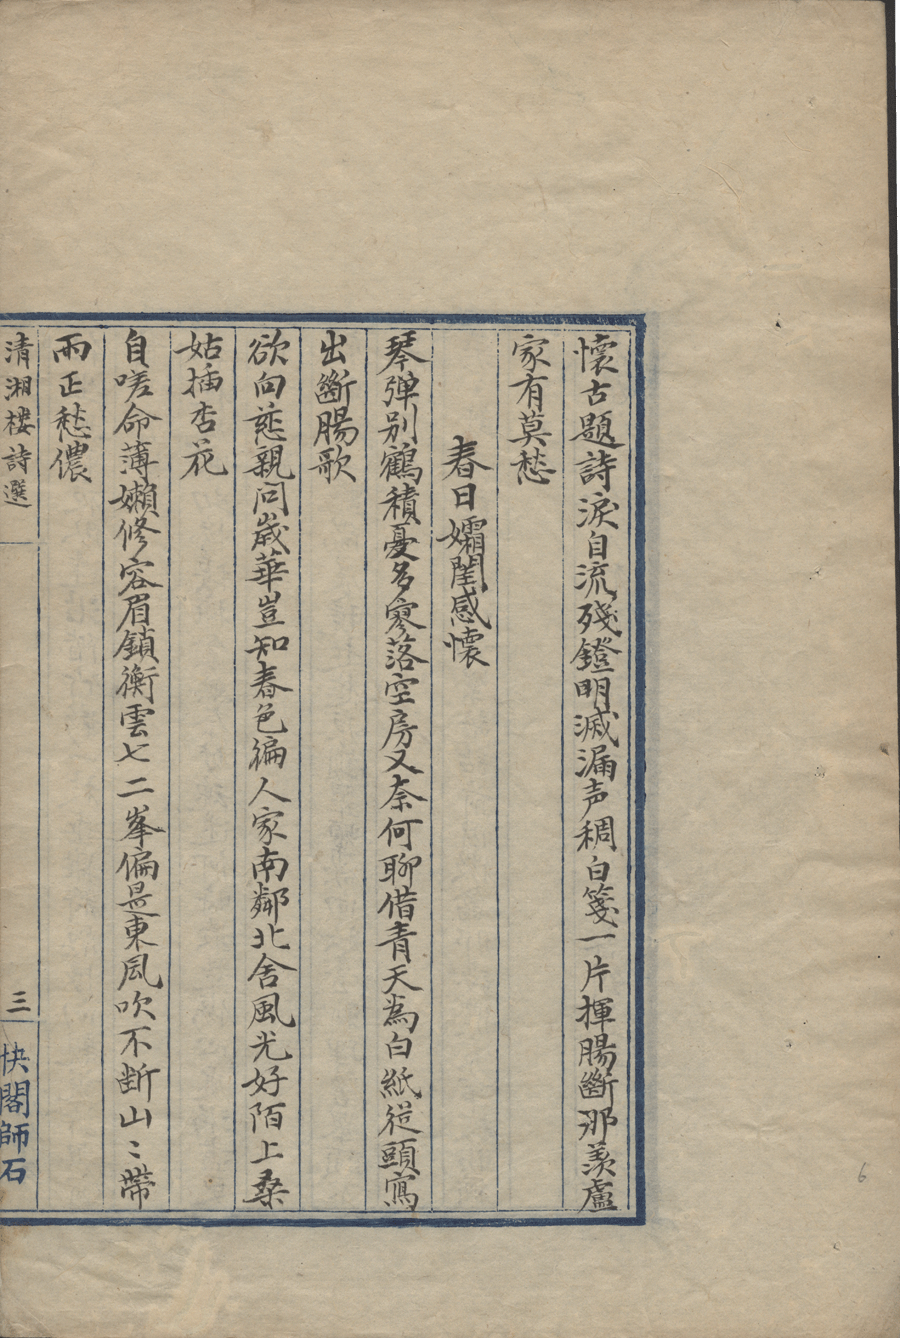 懷古題詩淚自流殘鐙明滅漏声稠白箋一片揮腸斷那羡盧
家有莫愁
春日孀閨感懷
琴弹别鶴積憂多寥落空房又奈何聊借青天為白紙從頭寫
出斷腸歌
欲向慈親问歲華豈知春色徧人家南鄰北舍風光好陌上桑
姑插杏花
自嗟命薄嬾修容眉鎖衡雲七二峯偏是東風吹不断山〻帶
雨正愁儂
清湘楼詩選
三
快閣師石
6